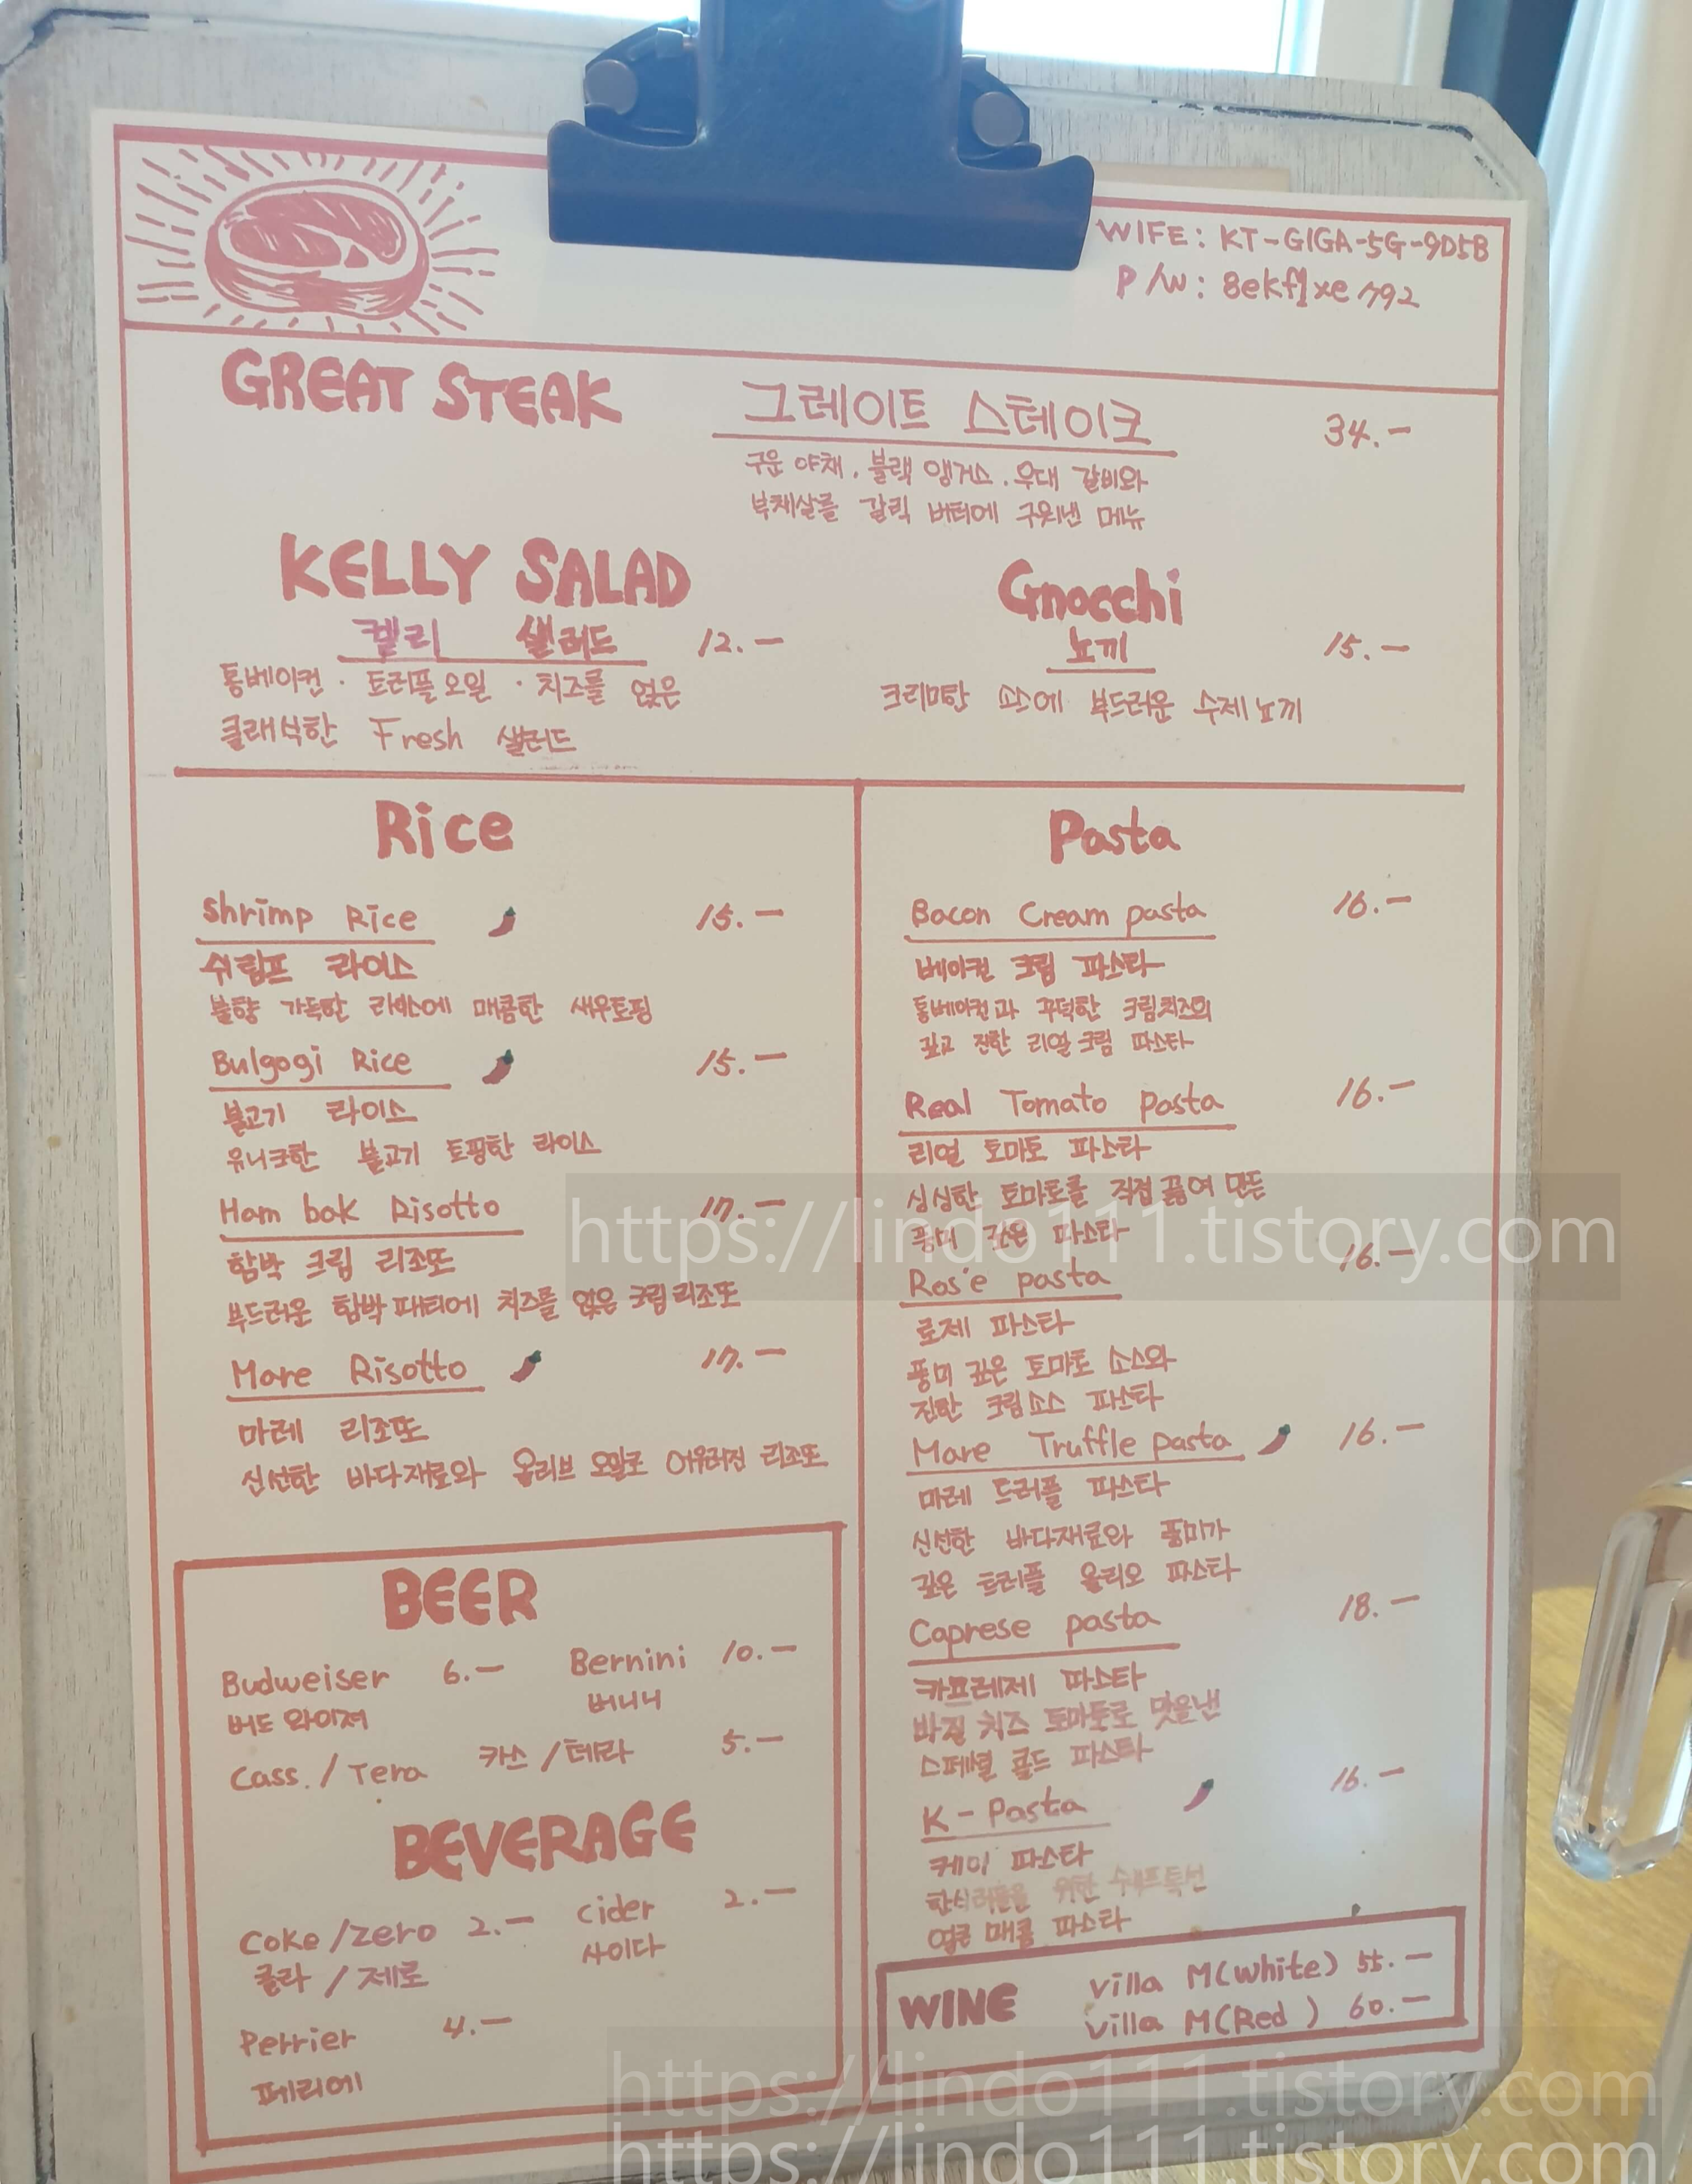 WIFE: KT-GIGA-5G-9D5B
P/W: 8ekf1xe792
GREAT STEAK
그레이트 스테이크 34.-
구운 야채. 블랙 앵거스. 우대 갈비와
부채살을 갈릭 버터에 구워낸 메뉴
KELLY SALAD
켈리 샐러드 12.-
통베이컨·트러플오일·치즈를 얹은
클래식한 Fresh 샐러드
Gnocchi
뇨끼 15.-
크리미한 소스에 부드러운 수제뇨끼
Rice
Shrimp Rice 15.-
쉬림프 라이스
불향 가득한 라이스에 매콤한 새우토핑
Bulgogi Rice 15.-
불고기 라이스
유니크한 불고기 토핑한 라이스
Ham bak Risotto 17.-
함박 크림 리조또
부드러운 함박패티에 치즈를 얹은 크림리조또
Mare Risotto 17.-
마레 리조또
신선한 바다재료와 올리브 오일로 어우러진 리조또
BEER
Budweiser 6.- Bernini 10.-
버드와이져 버니니
Cass./Tera 카스/테라 5.-
BEVERAGE
Coke/zero 2.- Cider 2.-
콜라/제로 사이다
Perrier 4.-
페리에
Pasta
Bacon Cream pasta 16.-
베이컨 크림 파스타
통베이컨과 꾸덕한 크림치즈의
깊고 진한 리얼크림 파스타
Real Tomato pasta 16.-
리얼 토마토 파스타
싱싱한 토마토를 직접 끓여 만든
풍미 깊은 파스타
Ros'e pasta 16.-
로제 파스타
풍미 깊은 토마토 소스와
진한 크림소스 파스타
Mare Truffle pasta 16.-
마레 트러플 파스타
신선한 바다재료와 풍미가
깊은 트러플 올리오 파스타
Caprese pasta 18.-
카프레제 파스타
바질 치즈 토마토로 맛을낸
스페셜 콜드 파스타
K-Pasta 16.-
케이 파스타
한식러들을 위한 쉐프특선
얼큰 매콤 파스타
WINE
Villa M(White) 55.-
Villa M(Red) 60.-
https://lindo111.tistory.com
https://lindo111.tistory.com
https://lindo111.tistory.com